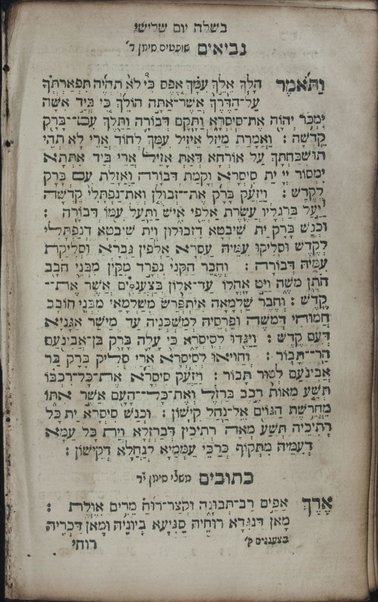 בשלח יום שלישי
נביאים שופטים סימן ד'
וַתֹּאמֶר הָלֹךְ אֵלֵךְ עִמָּךְ אֶפֶס כִּי לֹא תִהְיֶה תִּפְאַרְתְּךָ
עַל־הַדֶּרֶךְ אֲשֶׁר־אַתָּה הוֹלֵךְ כִּי בְיַד אִשָּׁה
יִמְכֹּר יְהוָה אֶת־סִיסְרָא וַתָּקָם דְּבוֹרָה וַתֵּלֶךְ עִם־בָּרָק
קֶדְשָׁה : וַאֲמַרַת מֵיזַל אֵיזֵיל עִמָּךְ לְחוֹד אֲרֵי לָא תְהֵי
תּוּשְׁבַּחְתָּךְ עַל אוֹרְחָא דְּאַתְּ אָזֵיל אֲרֵי בְּיַד אִתְּתָא
יִמְסוֹר יְיָ יַת סִיסְרָא וְקָמַת דְּבוֹרָה וַאֲזָלַת עִם בָּרָק
לְקֶדֶשׁ : וַיַּזְעֵק בָּרָק אֶת־זְבוּלֻן וְאֶת־נַפְתָּלִי קֶדְשָׁה
וַיַּעַל בְּרַגְלָיו עֲשֶׂרֶת אַלְפֵי אִישׁ וַתַּעַל עִמּוֹ דְּבוֹרָה :
וּכְנַשׁ בָּרָק יַת שִׁיבְטָא דִזְבוּלוּן וְיַת שִׁיבְטָא דְנַפְתָּלִי
לְקֶדֶשׁ וּסְלִיקוּ עִמֵּיהּ עַסְרָא אַלְפִין גַּבְרָא וּסְלֵיקַת
עִמֵּיהּ דְּבוֹרָה : וְחֶבֶר הַקֵּינִי נִפְרָד מִקַּיִן מִבְּנֵי חֹבָב
חֹתֵן מֹשֶׁה וַיֵּט אָהֳלוֹ עַד־אֵלוֹן בְּצַעֲנַנִּים אֲשֶׁר אֶת־
קֶדֶשׁ : וְחֶבֶר שַׁלְמָאָה אִיתְפָּרֵשׁ מִשַּׁלְמָאֵי מִבְּנֵי חוֹבָב
חֲמוּהִי דְמֹשֶׁה וּפְרַסֵיהּ לְמַשְׁכְּנֵיהּ עַד מֵישַׁר אַגַּנַיָּא
דְּעִם קֶדֶשׁ : וַיַּגִּדוּ לְסִיסְרָא כִּי עָלָה בָּרָק בֶּן־אֲבִינֹעַם
הַר־תָּבוֹר : וְחַוִּיאוּ לְסִיסְרָא אֲרֵי סְלֵיק בָּרָק בַּר
אֲבִינֹעַם לְטוּר תָּבוֹר : וַיַּזְעֵק סִיסְרָא אֶת־כָּל־רִכְבּוֹ
תְּשַׁע מֵאוֹת רֶכֶב בַּרְזֶל וְאֶת־כָּל־הָעָם אֲשֶׁר אִתּוֹ
מֵחֲרֹשֶׁת הַגּוֹיִם אֶל־נַחַל קִישׁוֹן : וּכְנַשׁ סִיסְרָא יַת כָּל
רְתִיכֵיהּ תְּשַׁע מְאָה רְתִיכִין דְּבַרְזְלָא וְיַת כָּל עַמָּא
דְעִמֵּיהּ מִתְּקוֹף כְּרַכֵּי עַמְמַיָּא לְנַחֲלָא דְקִישׁוֹן :
כתובים משלי סימן י"ד
אֶרֶךְ אַפַּיִם רַב־תְּבוּנָה וּקְצַר־רוּחַ מֵרִים אִוֶּלֶת :
מָאן דְּנַגִּדָא רוּחֵיהּ סַגִּיעָא בְיוּנֵיהּ וּמָאן דְּכַרְיָה
בצעננים ק'
רוחי